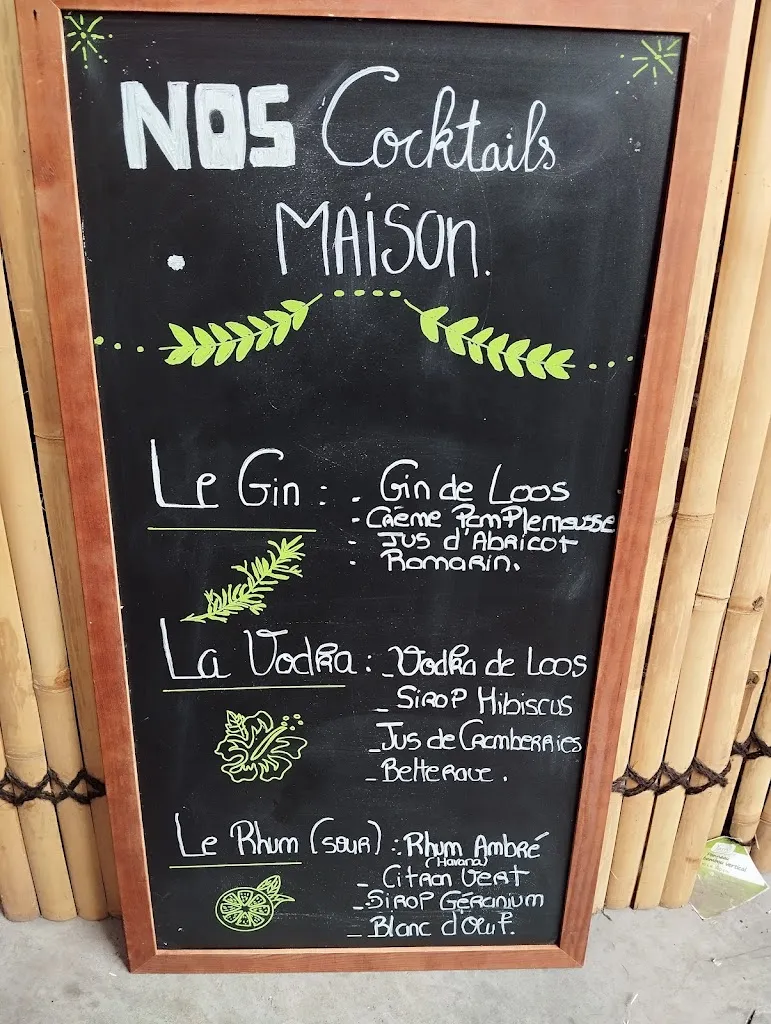 NOS Cocktails
MAISON.
Le Gin : . Gin de Loos
- Crème Pamplemousse
- Jus d'Abricot
. Romarin.
La Vodka : _ Vodka de Loos
_ Sirop Hibiscus
_ Jus de Cramberries
_ Betterave .
Le Rhum (sour) : . Rhum Ambré
(Havana)
_ Citron Vert
_ Sirop Géranium
_ Blanc d'œuf.